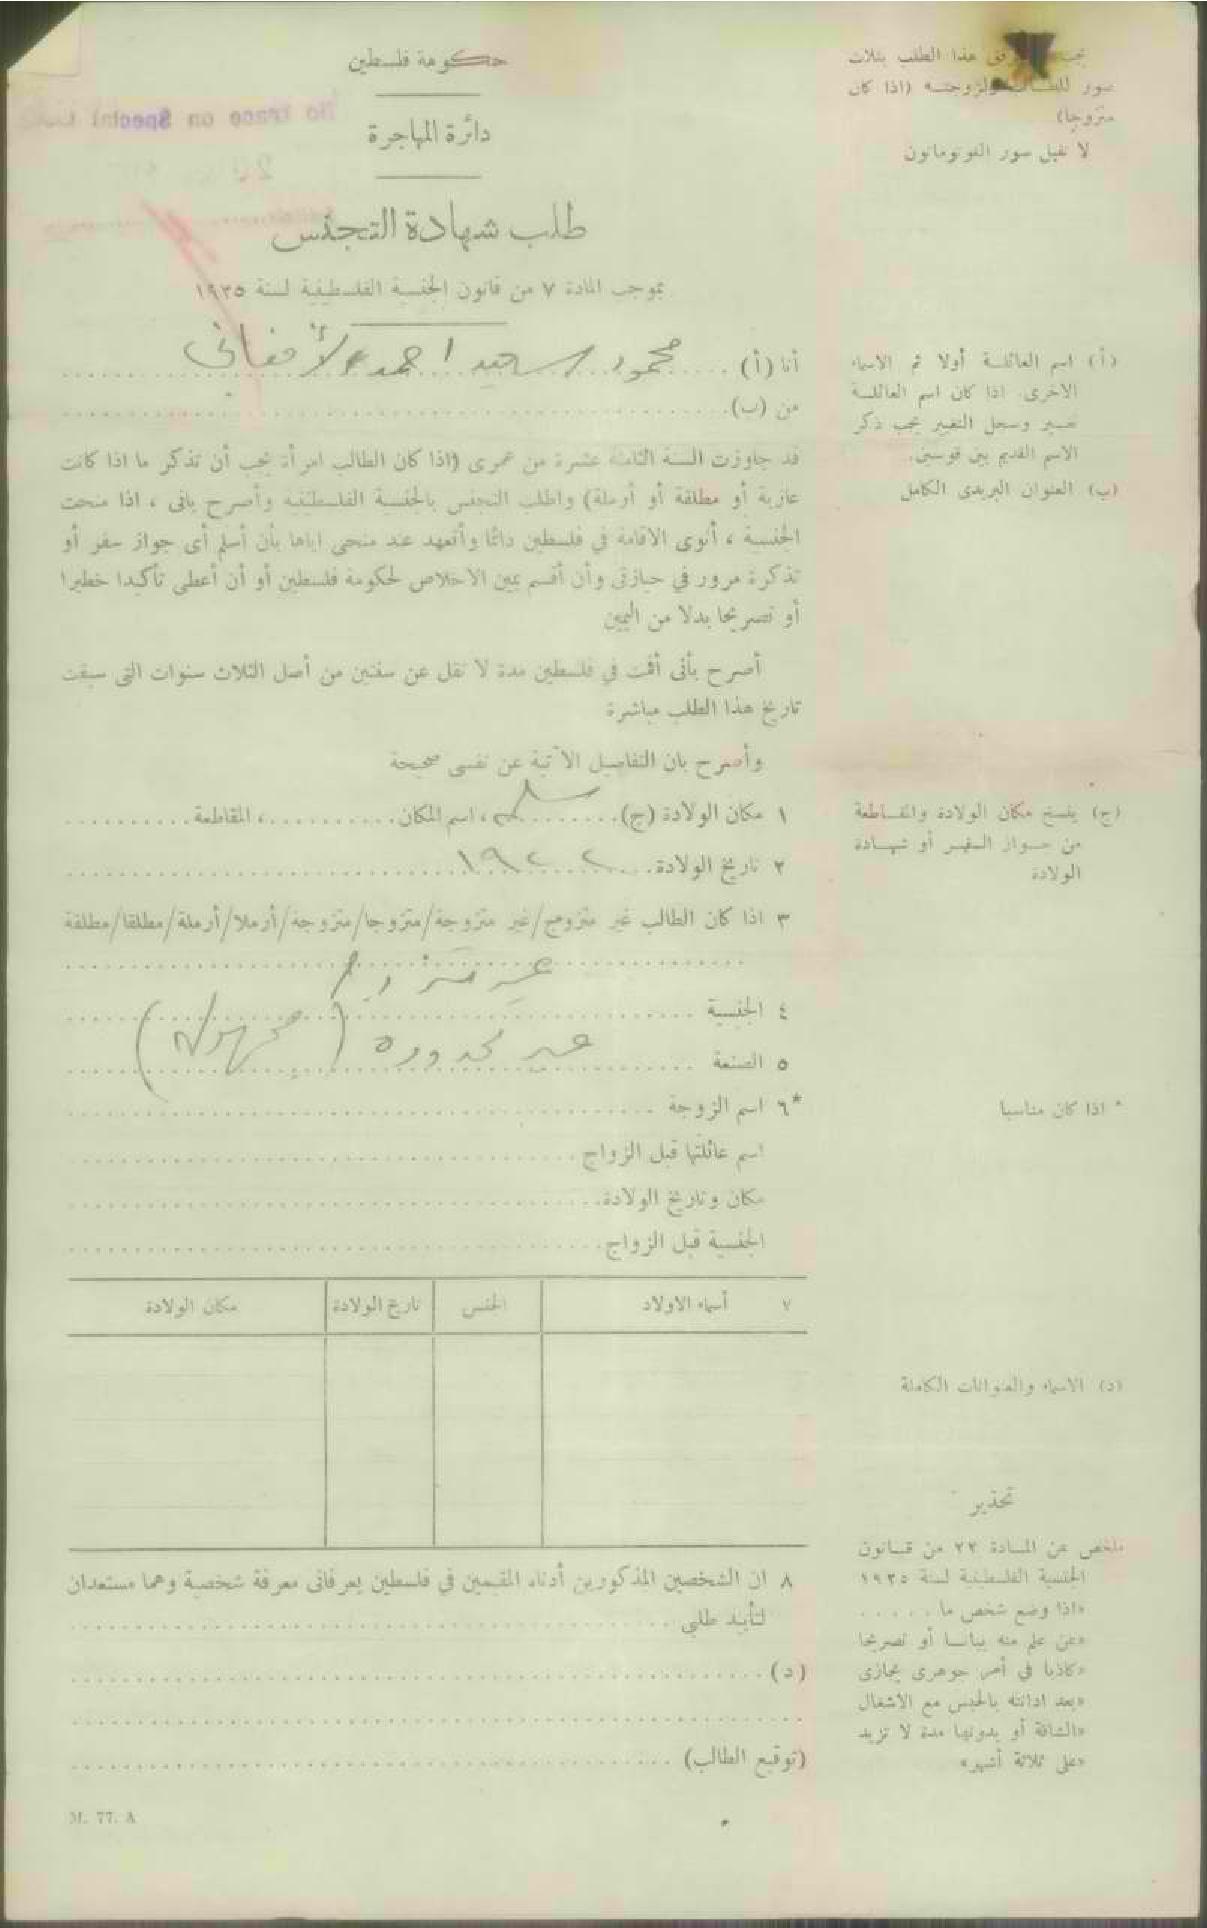 حكومة فلسطين
دائرة المهاجرة
طلب شهادة التجنس
بموجب المادة ٧ من قانون الجنسية الفلسطينية لسنة ١٩٣٥
يجب رفق هذا الطلب بثلاث
صور للطالب ولزوجته (اذا كان
متزوجا)
لا تقبل صور الفوتوماتون
No trace on Special
أنا (أ) محمود سعيد احمد الأفغاني
من (ب)
(أ) اسم العائلة أولا ثم الاسماء
الاخرى. اذا كان اسم العائلة
تغيير وسجل التغيير يجب ذكر
الاسم القديم بين قوسين.
(ب) العنوان البريدى الكامل
قد جاوزت السنة الثامنة عشرة من عمرى (اذا كان الطالب امرأة يجب أن تذكر ما اذا كانت
عازبة أو مطلقة أو أرملة) واطلب التجنس بالجنسية الفلسطينية وأصرح بانى ، اذا منحت
الجنسية ، أنوى الاقامة في فلسطين دائما وأتعهد عند منحى اياها بأن أسلم أى جواز سفر أو
تذكرة مرور في حيازتى وأن أقسم يمين الاخلاص لحكومة فلسطين أو أن أعطى تأكيدا خطيرا
أو تصريحا بدلا من اليمين
أصرح بأنى أقمت في فلسطين مدة لا تقل عن سنتين من أصل الثلاث سنوات التى سبقت
تاريخ هذا الطلب مباشرة
وأصرح بان التفاصيل الآتية عن نفسى صحيحة
١ مكان الولادة (ج) ، اسم المكان ، المقاطعة
(ج) ينسخ مكان الولادة والمقاطعة
من جواز السفر أو شهادة
الولادة
٢ تاريخ الولادة ١٩٢٢
٣ اذا كان الطالب غير متزوج/غير متزوجة/متزوجا/متزوجة/أرملا/أرملة/مطلقا/مطلقة
غير متزوج
٤ الجنسية
غير محدودة (مجهولة)
٥ الصنعة
*٦ اسم الزوجة
* اذا كان مناسبا
اسم عائلتها قبل الزواج
مكان وتاريخ الولادة
الجنسية قبل الزواج
٧ أسماء الاولاد الجنس تاريخ الولادة مكان الولادة
(د) الاسماء والعنوانات الكاملة
٨ ان الشخصين المذكورين أدناه المقيمين في فلسطين يعرفانى معرفة شخصية وهما مستعدان
لتأييد طلبى
(د)
(توقيع الطالب)
تحذير
ملخص عن المادة ٢٢ من قانون
الجنسية الفلسطينية لسنة ١٩٣٥
«اذا وضع شخص ما . . . . .
«عن علم منه بيانا أو تصريحا
«كاذبا في أمر جوهرى يجازى
«بعد ادانته بالحبس مع الاشغال
«الشاقة أو بدونها مدة لا تزيد
«على ثلاثة أشهر»
M. 77. A